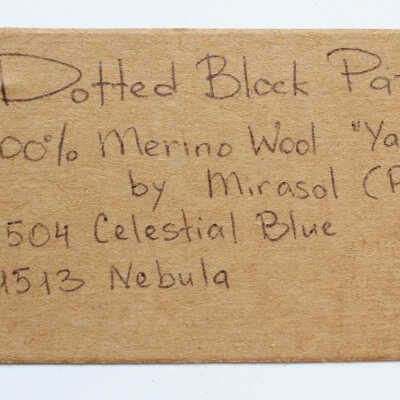 Dotted Block Pat
00% Merino Wool "Ya
by Mirasol (P
504 Celestial Blue
1513 Nebula